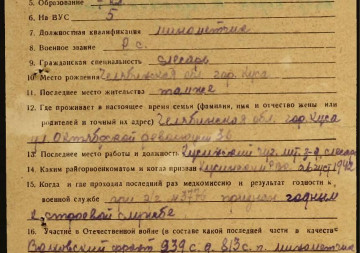 5. Образование
6. № ВУС 5
7. Должностная квалификация минометчик
8. Военное звание
9. Гражданская специальность слесарь
10. Место рождения Челябинская обл гор. Куса
11. Последнее место жительства также
12. Где проживает в настоящее время семья (фамилия, имя и отчество жены или
родителей и точный их адрес) Челябинская обл. гор. Куса
ул. Октябрьской революции 30
13. Последнее место работы и должность Кусинский слесарь
14. Каким райгорвоенкоматом и когда призван Кусинский август 1942
15. Когда и где проходил последний раз медкомиссию и результат годности к
военной службе при признан годным
к строевой службе
16. Участие в Отечественной войне (в составе какой последней части в качестве
Волховский фронт 939 с.п. минометчик